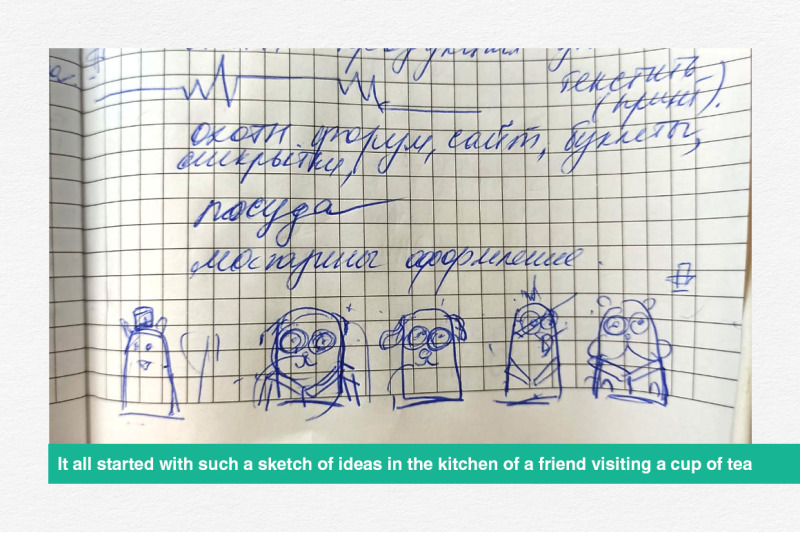 текстиль
(принт).
охотн. форум, сайт, буклеты,
открытки,
посуда
оформление.
It all started with such a sketch of ideas in the kitchen of a friend visiting a cup of tea